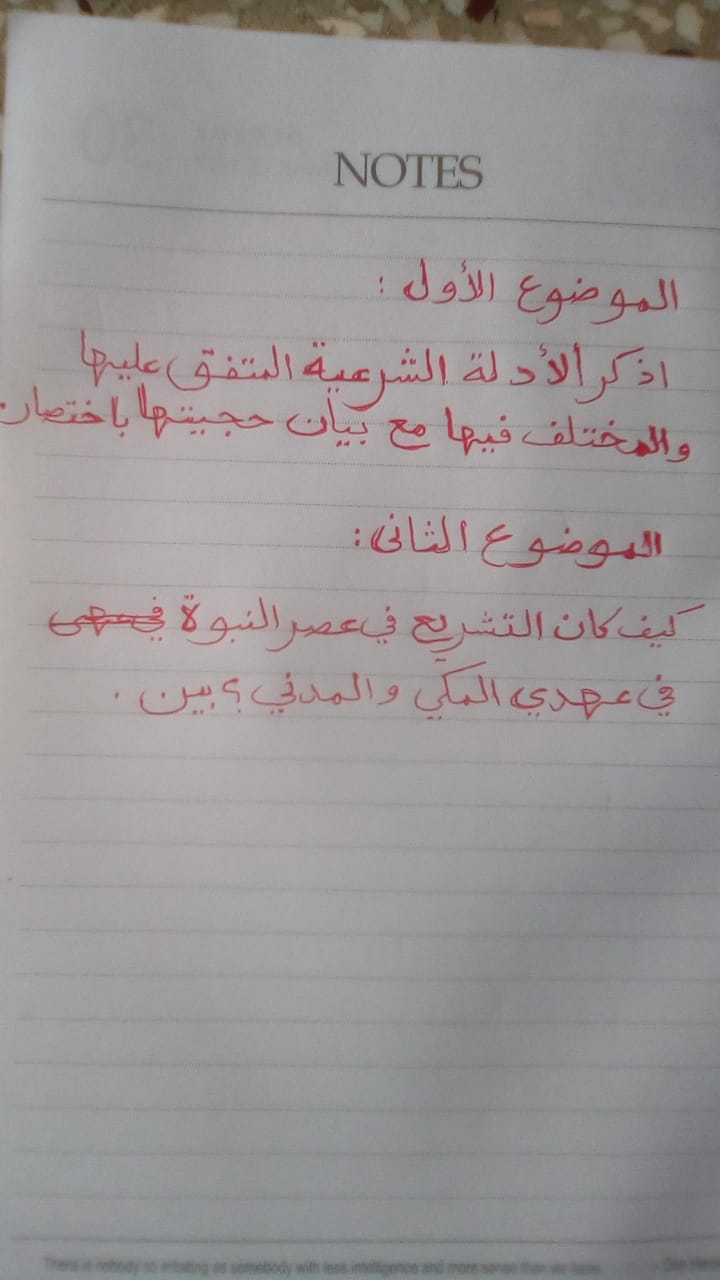 NOTES
الموضوع الأول :
اذكر الأدلة الشرعية المتفق عليها
والمختلف فيها مع بيان حجيتها باختصار
الموضوع الثانى :
كيف كان التشريع في عصر النبوة
في عهدي المكي والمدني ؟ بين .
There is nobody so irritating as somebody with less intelligence and more sense than we have